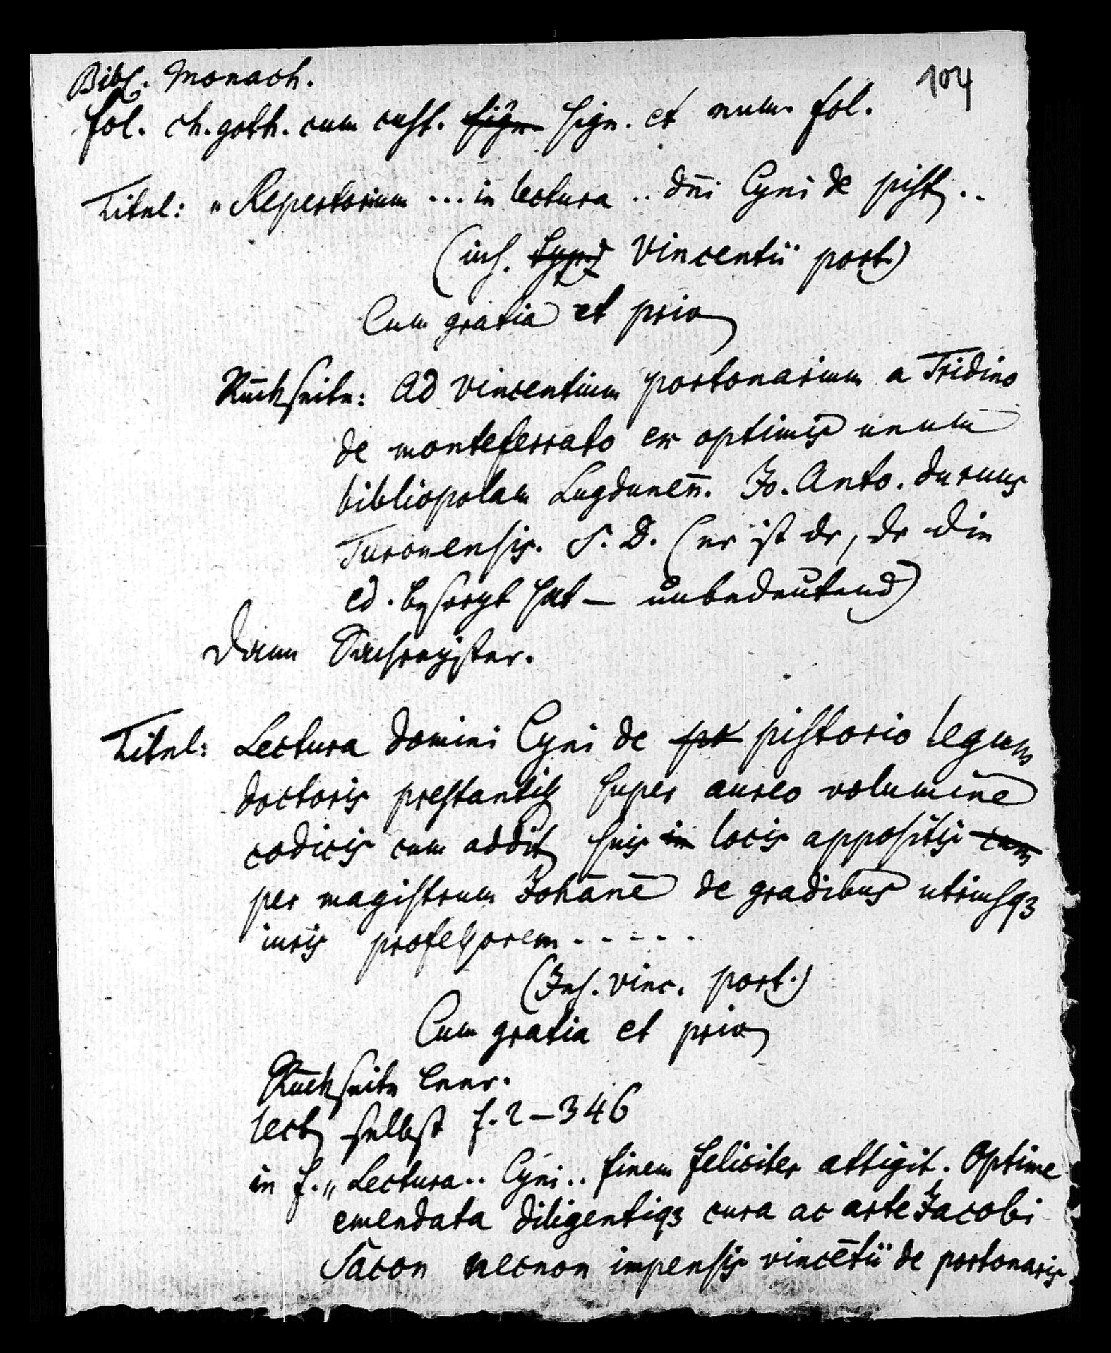 Bibl. Monach.
104
fol. ch. goth. cum cust. sign. sign. et num. fol.
Titel: „Repertorium ... in lectura .. dn̄i Cyni de pist ..
(insf. Vincentii port.)
Cum gratia et priv
Rückseite: Ad vincentium portonarium a Tridino
de monteferrato ex optimis unum
bibliopolam Lugdunen̄. Jo. Anto. durus
Turonensis. S. D. (er ist der, der die
ed. besorgt hat – unbedeutend)
Dann Sachregister.
Titel: Lectura domini Cyni de pistorio legum
doctoris prestantiss super aureo volumine
codicis cum addit suis in locis appositis cum
per magistrum Johānē de gradibus utriusqȝ
iuris professorem - - - - -
(Ins. vinc. port.)
Cum gratia et priv
Rückseite leer.
lect selbst f. 2–346
in f. „Lectura .. Cyni .. finem feliciter attigit. Optime
emendata diligentiqȝ cura ac arte Jacobi
Sacon necnon impensis vincētii de portonariis.